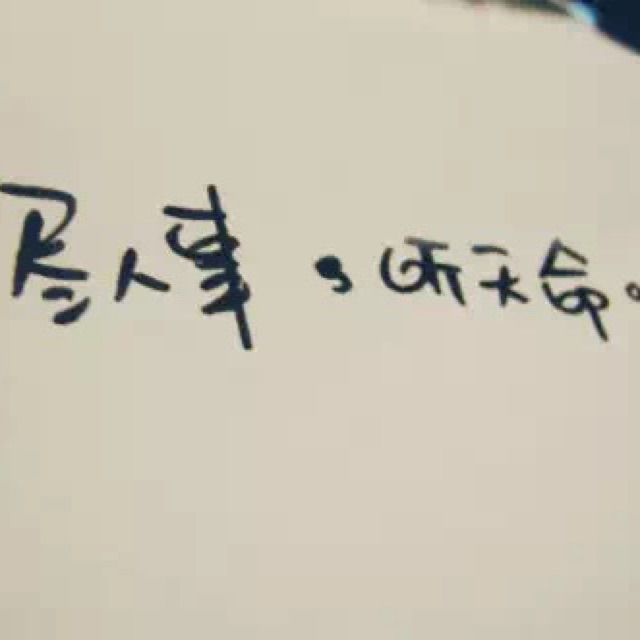 尽人事，听天命。